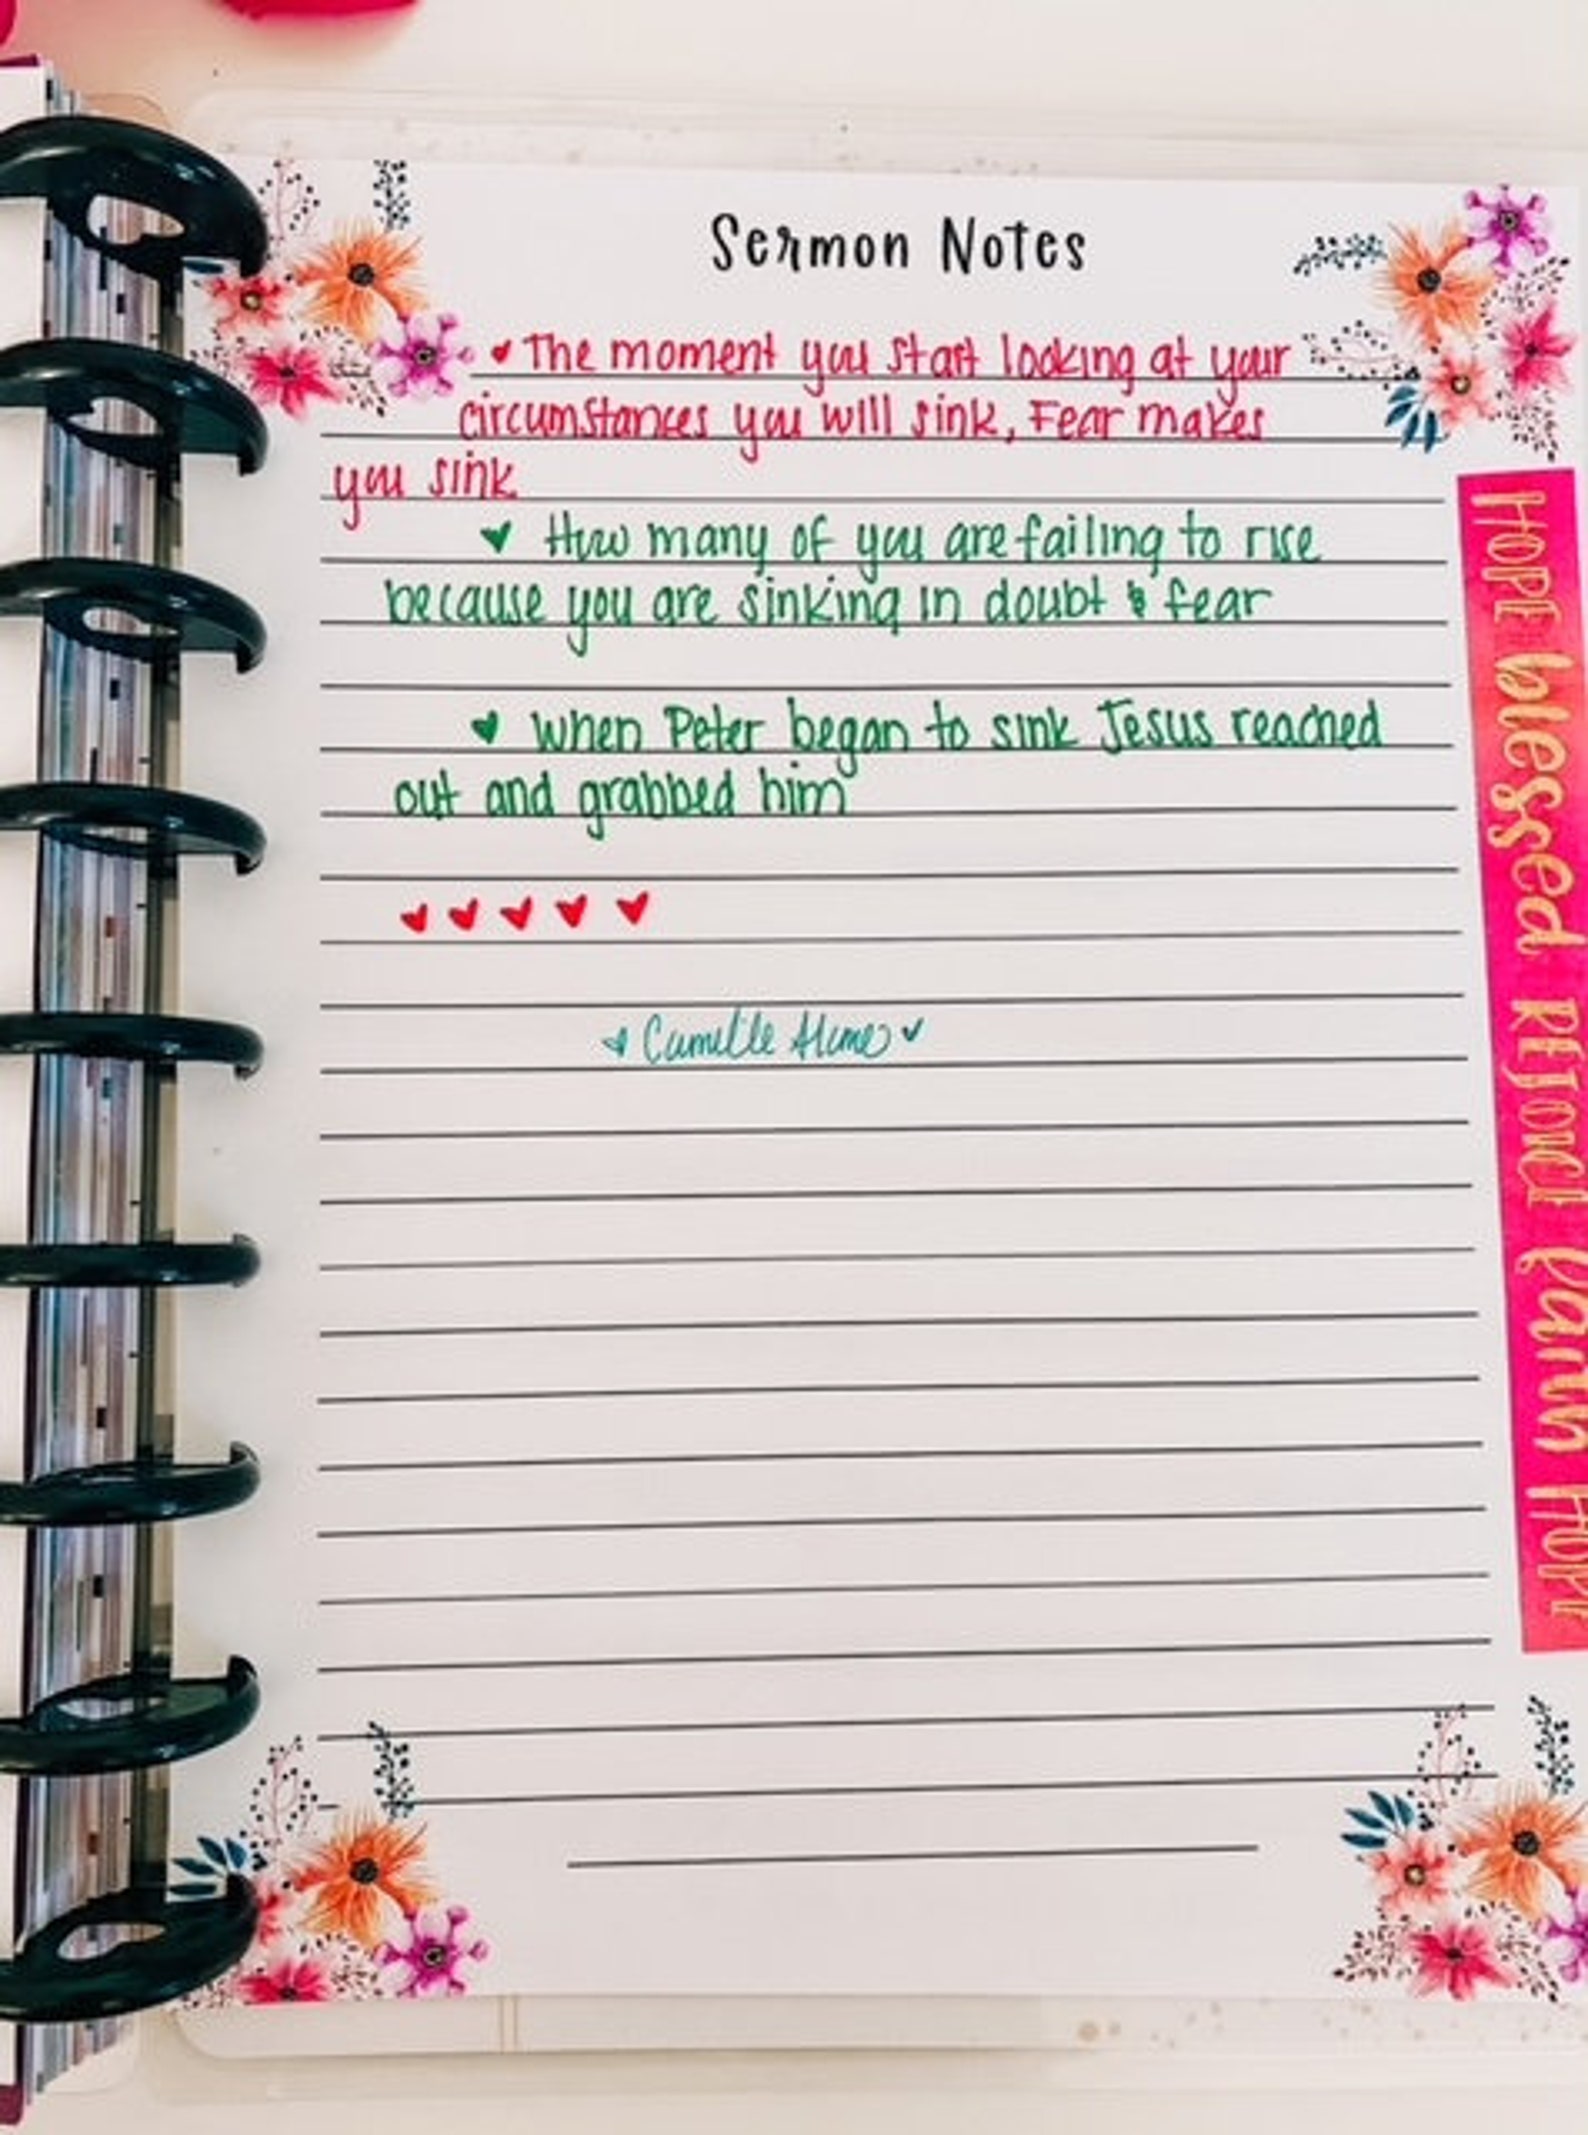 Sermon Notes
The moment you start looking at your
circumstances you will sink, Fear makes
you sink
How many of you are failing to rise
because you are sinking in doubt & fear
When Peter began to sink Jesus reached
out and grabbed him
Camille
HOPE blessed REJOICE Faith HOPE